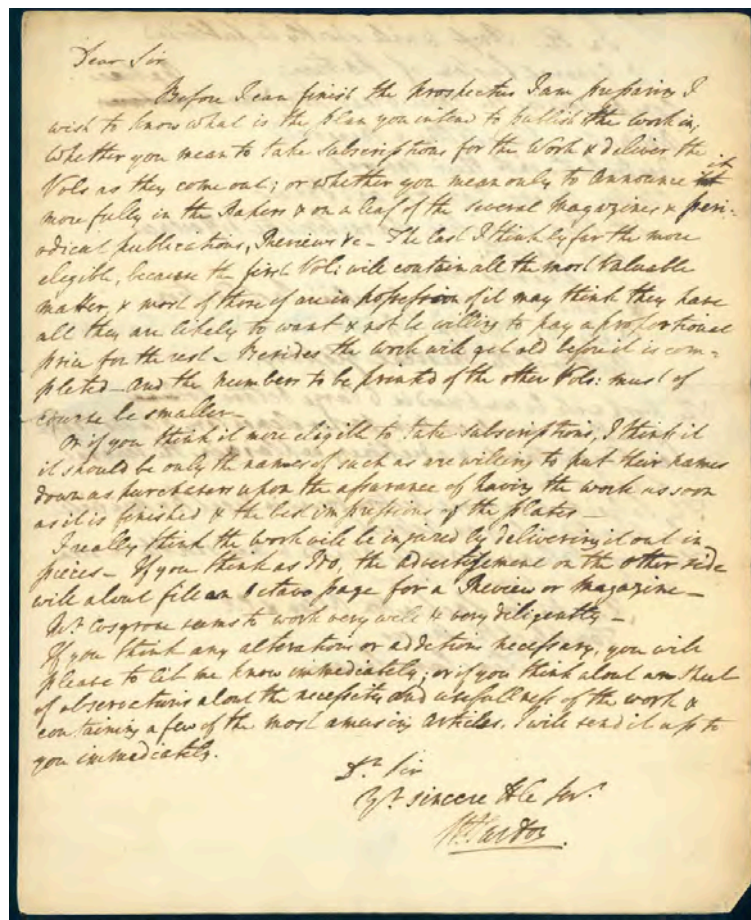 Dear Sir
Before I can finish the Prospectus I am preparing I
wish to know what is the plan you intend to publish the work in,
whether you mean to take Subscriptions for the Work & deliver the
Vols as they come out; or whether you mean only to Announce it
more fully in the Papers & on a leaf of the several Magazines & peri-
odical publications, Reviews &c - The last I think by far the more
elegible, because the first Vol: will contain all the most Valuable
matter, & most of those if are in possession of it may think they have
all they are likely to want & not be willing to pay a proportional
price for the rest - Besides the work will get old before it is com-
pleted - and the numbers to be printed of the other Vols: must of
course be smaller -
Or if you think it more eligible to take subscriptions, I think it
it should be only the names of such as are willing to put their names
down as purchasers upon the assurance of having the work as soon
as it is finished & the best impressions of the plates -
I really think the work will be injured by delivering it out in
pieces - If you think as I do, the advertisement on the other side
will about fill an Octavo page for a Review or Magazine -
Mr. Cosgrove seems to work very well & very diligently -
If you think any alterations or additions necessary, you will
please to let me know immediately; or if you think about an Sheet
of observations about the necessity and usefullness of the work &
containing a few of the most amusing articles. I will send it up to
you immediately.
Dr. Sir
Yr. sincere Hle Servt.